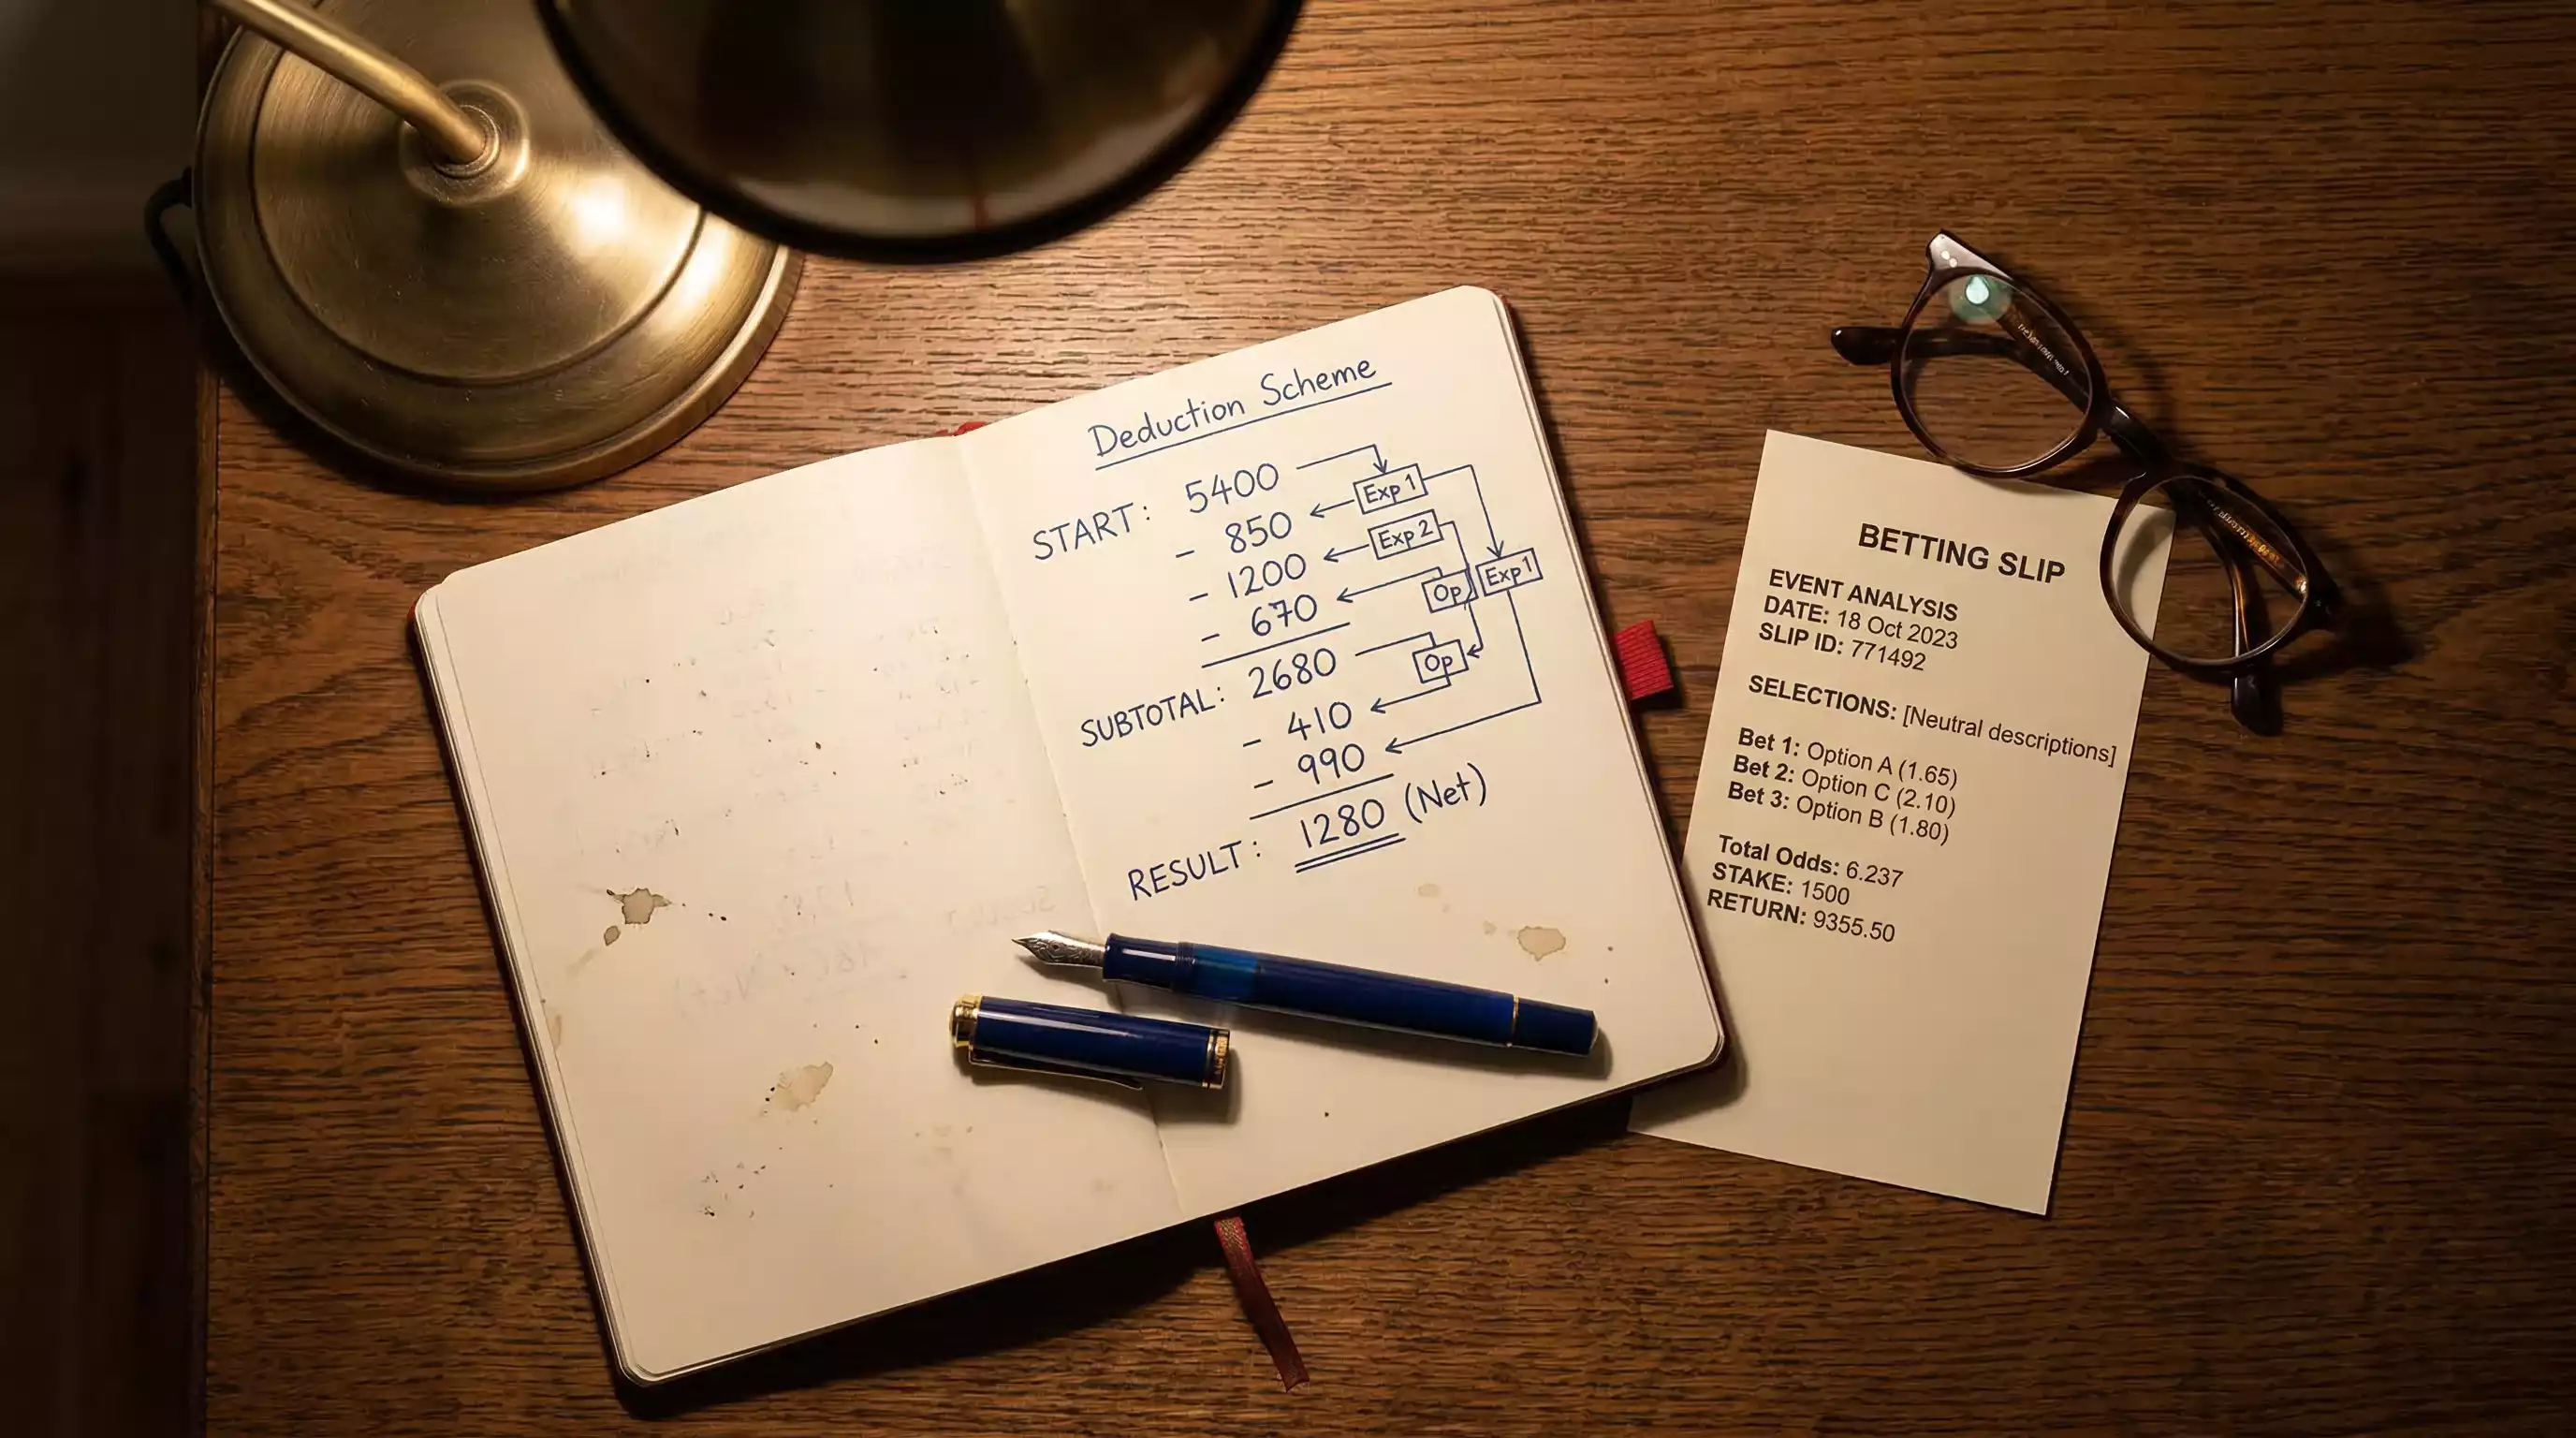 Deduction Scheme
START: 5400
- 850
- 1200
- 670
SUBTOTAL: 2680
- 410
- 990
RESULT: 1280 (Net)
Exp 1
Exp 2
Op
Exp 1
Op
BETTING SLIP
EVENT ANALYSIS
DATE: 18 Oct 2023
SLIP ID: 771492
SELECTIONS: [Neutral descriptions]
Bet 1: Option A (1.65)
Bet 2: Option C (2.10)
Bet 3: Option B (1.80)
Total Odds: 6.237
STAKE: 1500
RETURN: 9355.50